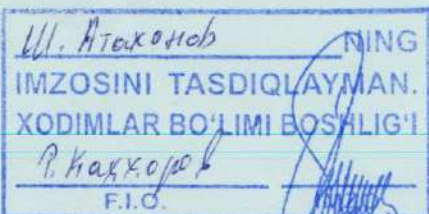 Ш. Атаханов NING
IMZOSINI TASDIQLAYMAN.
XODIMLAR BO'LIMI BOSHLIG'I
Р. Каххоров
F.I.O.